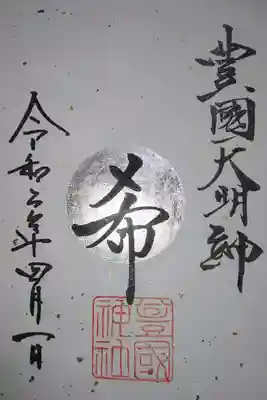 豊國大明神
希
豊國
神社
令和二年四月一日